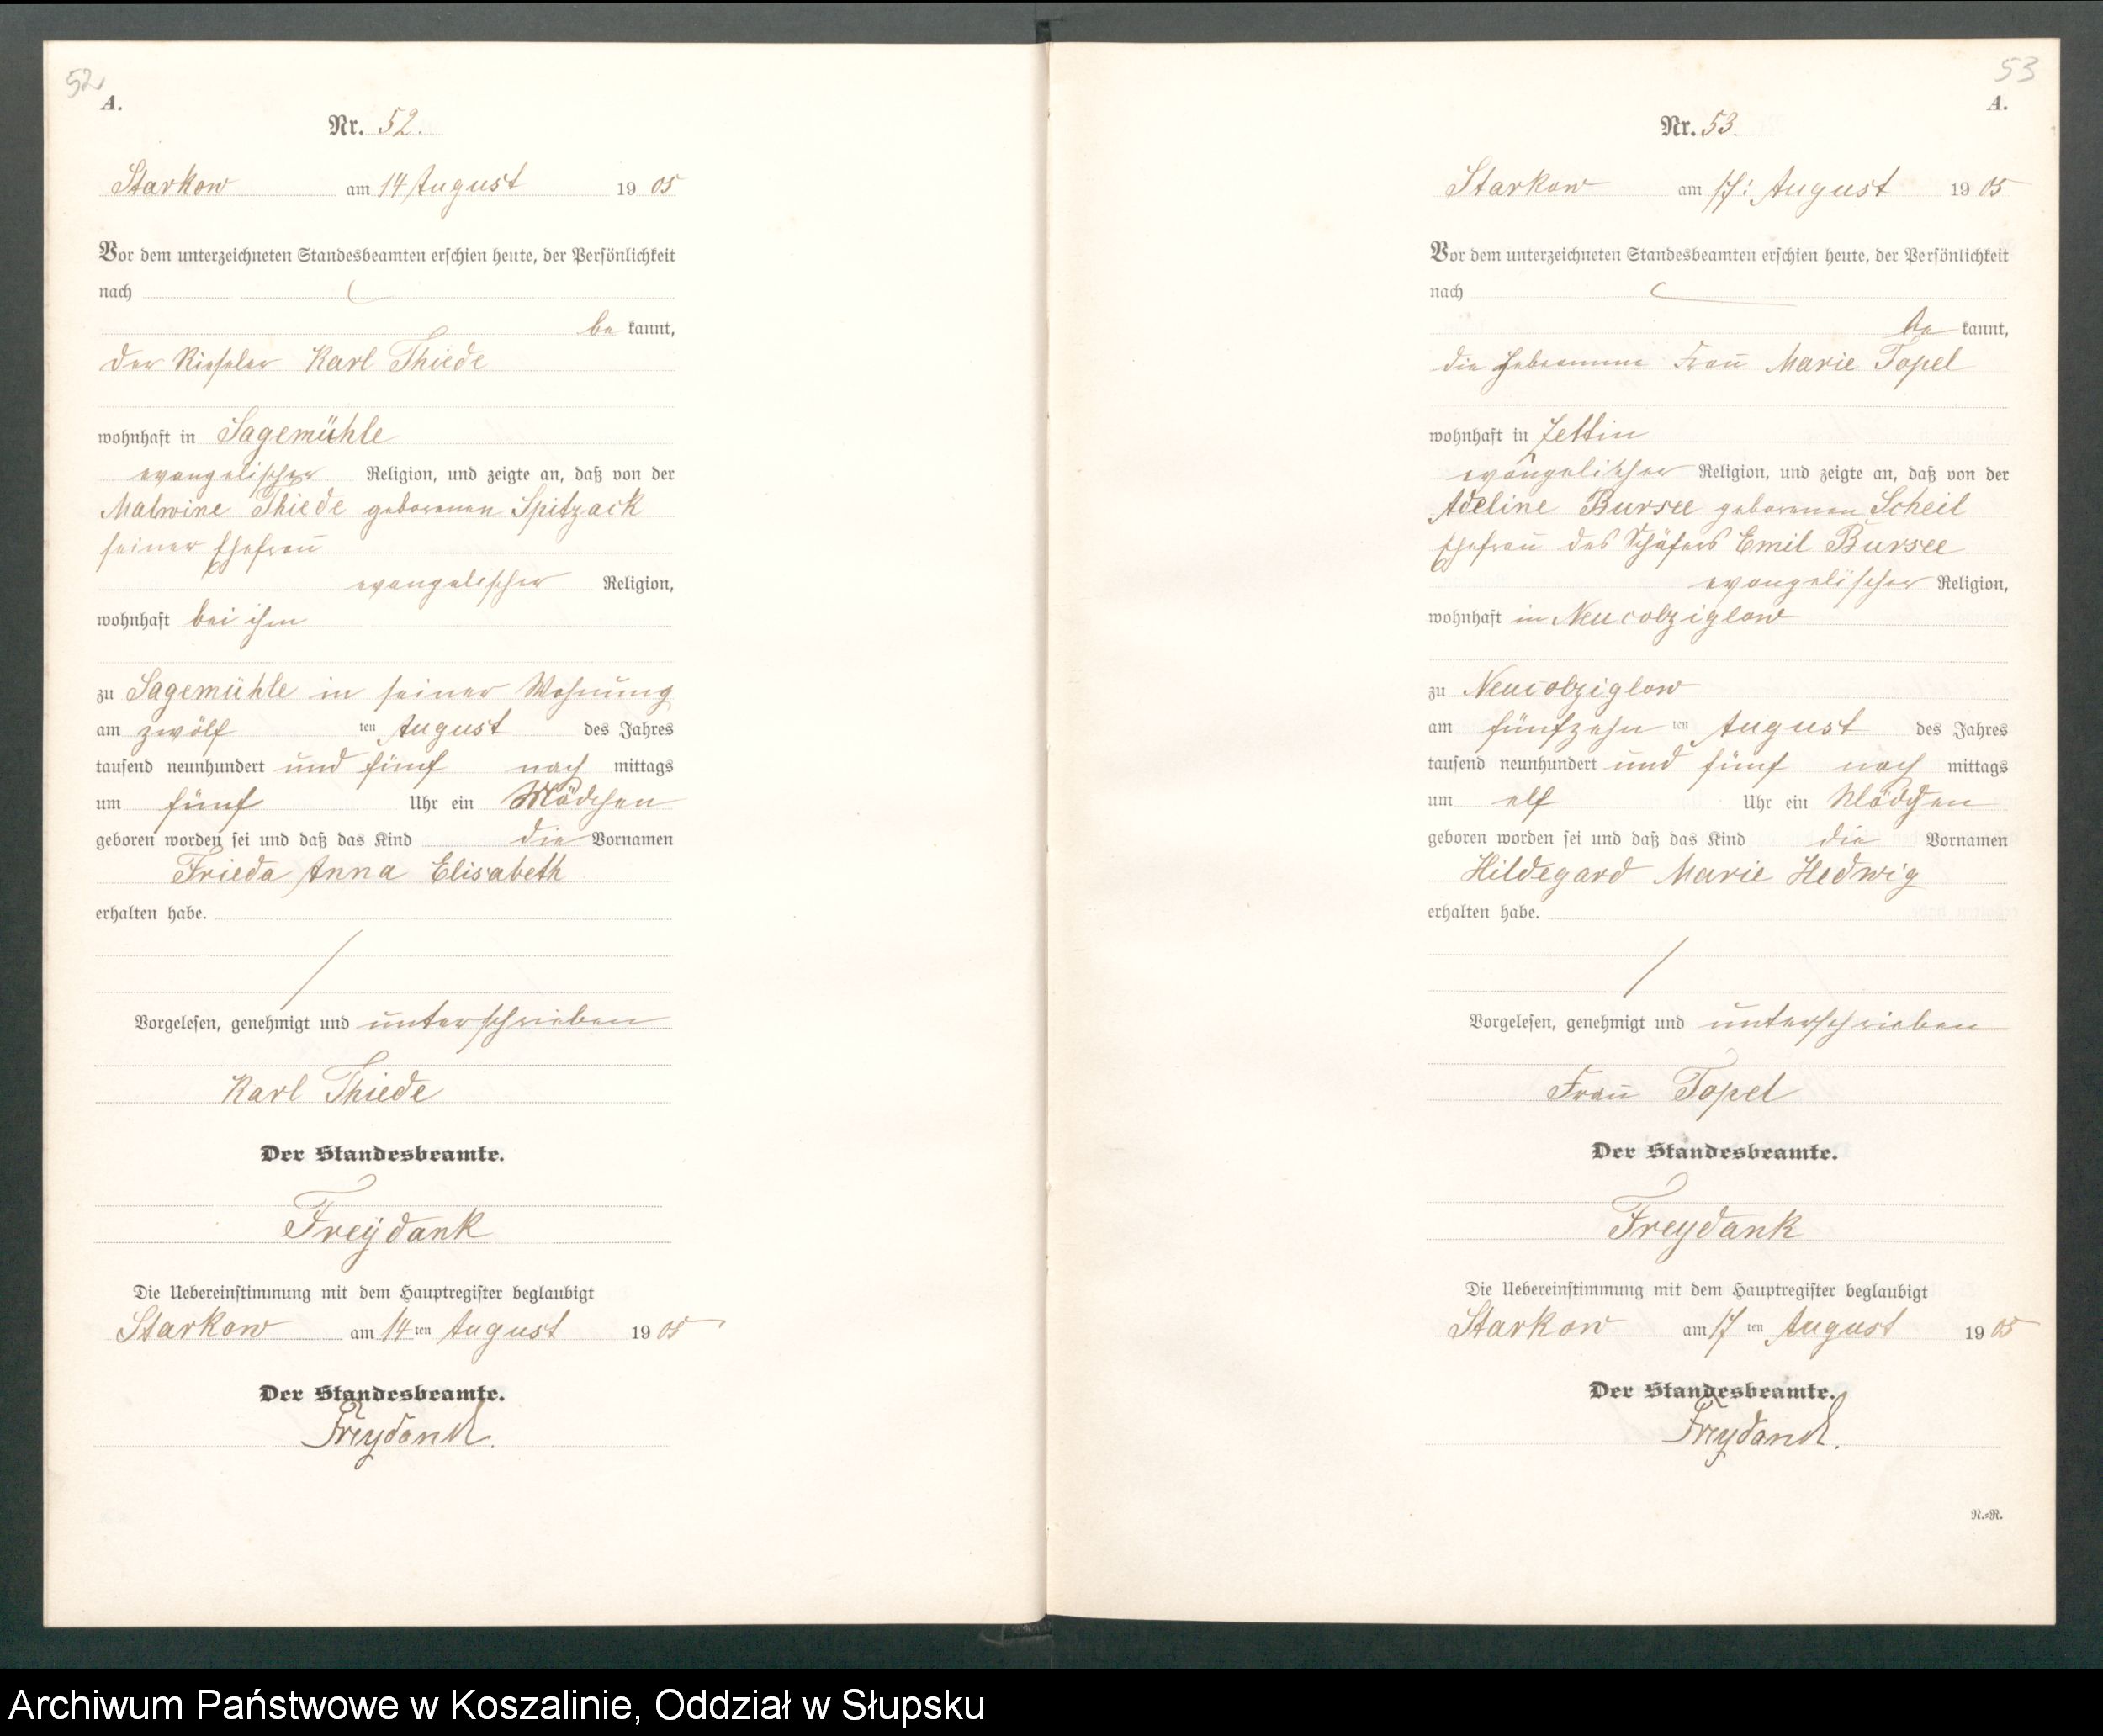 52
A.
Nr. 52.
Starkow am 14 August 1905
Vor dem unterzeichneten Standesbeamten erschien heute, der Persönlichkeit
nach
be kannt,
der Rieseler Karl Thiede
wohnhaft in Sagemühle
evangelischer Religion, und zeigte an, daß von der
Malwine Thiede geborenen Spitzack
seiner Ehefrau
evangelischer Religion,
wohnhaft bei ihm
zu Sagemühle in seiner Wohnung
am zwölf ten August des Jahres
tausend neunhundert und fünf nach mittags
um fünf Uhr ein Mädchen
geboren worden sei und daß das Kind die Vornamen
Frieda Anna Elisabeth
erhalten habe.
Vorgelesen, genehmigt und unterschrieben
Karl Thiede
Der Standesbeamte.
Freydank
Die Uebereinstimmung mit dem Hauptregister beglaubigt
Starkow am 14 ten August 1905
Der Standesbeamte.
Freydank.
53
A.
Nr. 53.
Starkow am 17. August 1905
Vor dem unterzeichneten Standesbeamten erschien heute, der Persönlichkeit
nach
be kannt,
die Hebeamme Frau Marie Topel
wohnhaft in Zettin
evangelischer Religion, und zeigte an, daß von der
Adeline Bursee geborenen Scheil
Ehefrau des Schäfers Emil Bursee
evangelischer Religion,
wohnhaft in Neucolziglow
zu Neucolziglow
am fünfzehn ten August des Jahres
tausend neunhundert und fünf nach mittags
um elf Uhr ein Mädchen
geboren worden sei und daß das Kind die Vornamen
Hildegard Marie Hedwig
erhalten habe.
Vorgelesen, genehmigt und unterschrieben
Frau Topel
Der Standesbeamte.
Freydank
Die Uebereinstimmung mit dem Hauptregister beglaubigt
Starkow am 17 ten August 1905
Der Standesbeamte.
Freydank.
R.=R.
Archiwum Państwowe w Koszalinie, Oddział w Słupsku